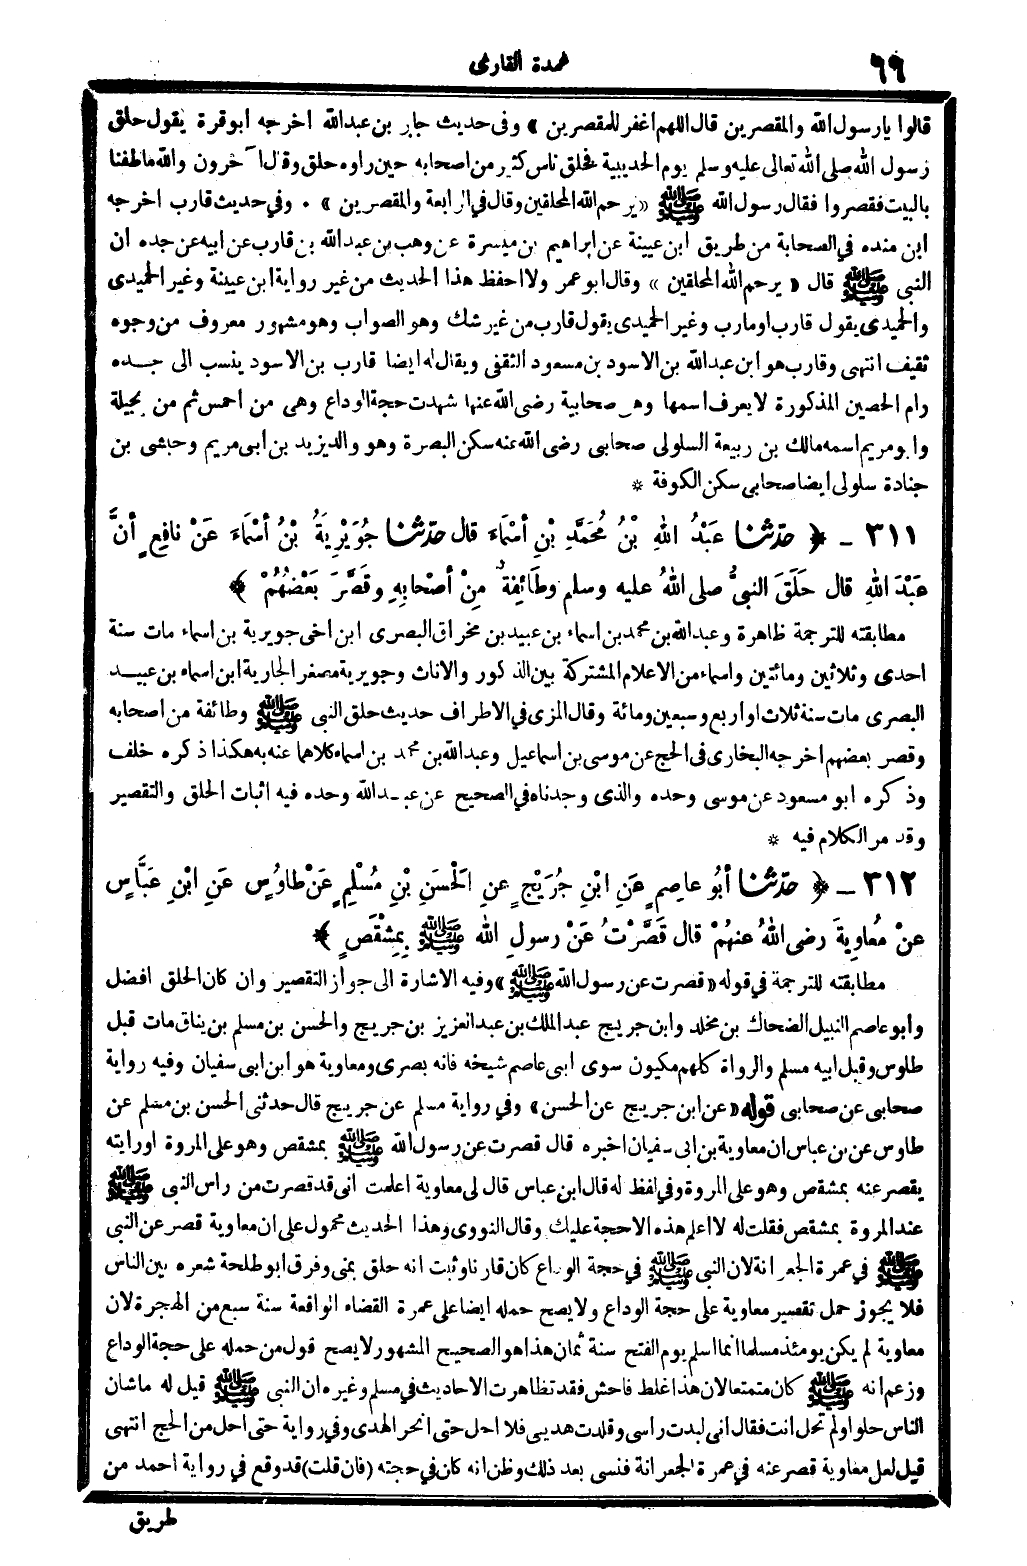 ٦٦
عمدة القارى
قالوا يارسول الله والمقصرين قال اللهم اغفر للمقصرين » وفى حديث جابر بن عبدالله اخرجه ابوقرة يقول حلق
رسول الله صلى الله تعالى عليه وسلم يوم الحديبية فحلق ناس كثير من اصحابه حين راوه حلق وقال آخرون والله ماطفنا
بالبيت فقصروا فقال رسول الله ﷺ «يرحم الله المحلقين وقال في الرابعة والمقصرين » . وفي حديث قارب اخرجه
ابن منده في الصحابة من طريق ابن عيينة عن ابراهيم بن ميسرة عن وهب بن عبدالله بن قارب عن ابيه عن جده ان
النبى ﷺ قال « يرحم الله المحلقين » وقال ابو عمر ولا احفظ هذا الحديث من غير رواية ابن عيينة وغير الحميدى
والحميدى يقول قارب او مارب وغير الحميدى يقول قارب من غير شك وهو الصواب وهو مشهور معروف من وجوه
ثقيف انتهى وقارب هو ابن عبدالله بن الاسود بن مسعود الثقفى ويقال له ايضا قارب بن الاسود ينسب الى جده
وام الحصين المذكورة لا يعرف اسمها وهى صحابية رضى الله عنها شهدت حجة الوداع وهى من احمس ثم من بجيلة
وابو مريم اسمه مالك بن ربيعة السلولى صحابى رضى الله عنه سكن البصرة وهو والد يزيد بن أبى مريم وحبشى بن
جنادة سلولى ايضا صحابى سكن الكوفة *
٣١١ - ﴿ حدثنا عَبْدُ اللهِ بْنُ مُحَمَّدِ بْنِ أسْمَاءَ قال حدثنا جُوَيْرِيَةُ بْنُ أسْمَاءَ عَنْ نافِعٍ أنَّ
عَبْدَ اللهِ قال حَلَقَ النبىُّ صلى اللهُ عليه وسلم وطَائِفَةٌ مِنْ أصْحابِهِ وقَصَّرَ بَعْضُهُمْ ﴾
مطابقته للترجمة ظاهرة وعبدالله بن محمد بن اسماء بن عبيد بن مخراق البصرى ابن اخى جويرية بن اسماء مات سنة
احدى وثلاثين ومائتين واسماء من الاعلام المشتركة بين الذكور والاناث وجويرية مصغر الجارية ابن اسماء بن عبيد
البصرى مات سنة ثلاث او اربع وسبعين ومائة وقال المزى في الاطراف حديث حلق النبى ﷺ وطائفة من اصحابه
وقصر بعضهم اخرجه البخارى فى الحج عن موسى بن اسماعيل وعبدالله بن محمد بن اسماء كلاهما عنه به هكذا ذكره خلف
وذكره ابو مسعود عن موسى وحده والذى وجدناه فى الصحيح عن عبدالله وحده فيه اثبات الحلق والتقصير
وقد مر الكلام فيه *
٣١٢ - ﴿ حدثنا أبُو عاصِمٍ عَنِ ابْنِ جُرَيْجٍ عنِ الحَسَنِ بْنِ مُسْلِمٍ عَنْ طاوُسٍ عَنِ ابْنِ عَبَّاسٍ
عنْ مُعاوِيَةَ رضى اللهُ عنهُمْ قال قَصَّرْتُ عَنْ رسولِ الله ﷺ بِمِشْقَصٍ ﴾
مطابقته للترجمة في قوله «قصرت عن رسول الله ﷺ» وفيه الاشارة الى جواز التقصير وان كان الحلق افضل
وابو عاصم النبيل الضحاك بن مخلد وابن جريج عبدالملك بن عبدالعزيز بن جريج والحسن بن مسلم بن يناق مات قبل
طاوس وقبل ابيه مسلم والرواة كلهم مكيون سوى ابى عاصم شيخه فانه بصرى ومعاوية هو ابن ابى سفيان وفيه رواية
صحابى عن صحابى قوله «عن ابن جريج عن الحسن» وفي رواية مسلم عن جريج قال حدثنى الحسن بن مسلم عن
طاوس عن بن عباس ان معاوية بن ابى سفيان اخبره قال قصرت عن رسول الله ﷺ بمشقص وهو على المروة اورايته
يقصر عنه بمشقص وهو على المروة وفي لفظ له قال ابن عباس قال لى معاوية اعلمت انى قد قصرت من راس النبى ﷺ
عند المروة بمشقص فقلت له لا اعلم هذه الاحجة عليك وقال النووى وهذا الحديث محمول على ان معاوية قصر عن النبى
ﷺ في عمرة الجعرانة لان النبى ﷺ في حجة الوداع كان قارنا وثبت انه حلق بمنى وفرق ابو طلحة شعره بين الناس
فلا يجوز حمل تقصير معاوية على حجة الوداع ولا يصح حمله ايضا على عمرة القضاء الواقعة سنة سبع من الهجرة لان
معاوية لم يكن يومئذ مسلما انما اسلم يوم الفتح سنة ثمان هذا هو الصحيح المشهور لا يصح قول من حمله على حجة الوداع
وزعم انه ﷺ كان متمتعا لان هذا غلط فاحش فقد تظاهرت الاحاديث في مسلم وغيره ان النبى ﷺ قيل له ماشان
الناس حلوا ولم تحل انت فقال انى لبدت راسى وقلدت هديى فلا احل حتى انحر الهدى وفي رواية حتى احل من الحج انتهى
قيل لعل معاوية قصر عنه في عمرة الجعرانة فنسى بعد ذلك وظن انه كان في حجته (فان قلت) قد وقع في رواية احمد من
طريق